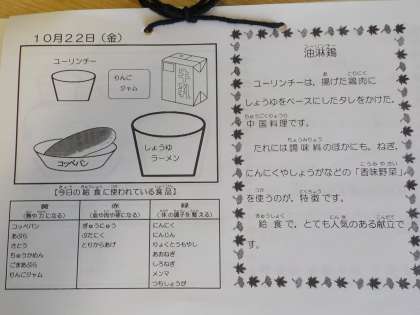 10月22日(金)
ユーリンチー
りんご
ジャム
コッペパン
しょうゆ
ラーメン
【今日の給食に使われている食品】
黄 赤 緑
(熱や力になる) (血や肉や骨になる) (体の調子を整える)
コッペパン ぎゅうにゅう にんにく
あぶら ぶたにく にんじん
さとう とりからあげ りょくとうもやし
ちゅうかめん あおねぎ
ごまあぶら しろねぎ
りんごジャム メンマ
つちしょうが
油淋鶏
ユーリンチーは、揚げた鶏肉に
しょうゆをベースにしたタレをかけた、
中国料理です。
たれには調味料のほかにも、ねぎ、
にんにくやしょうがなどの「香味野菜」
を使うのが、特徴です。
給食で、とても人気のある献立で
す。